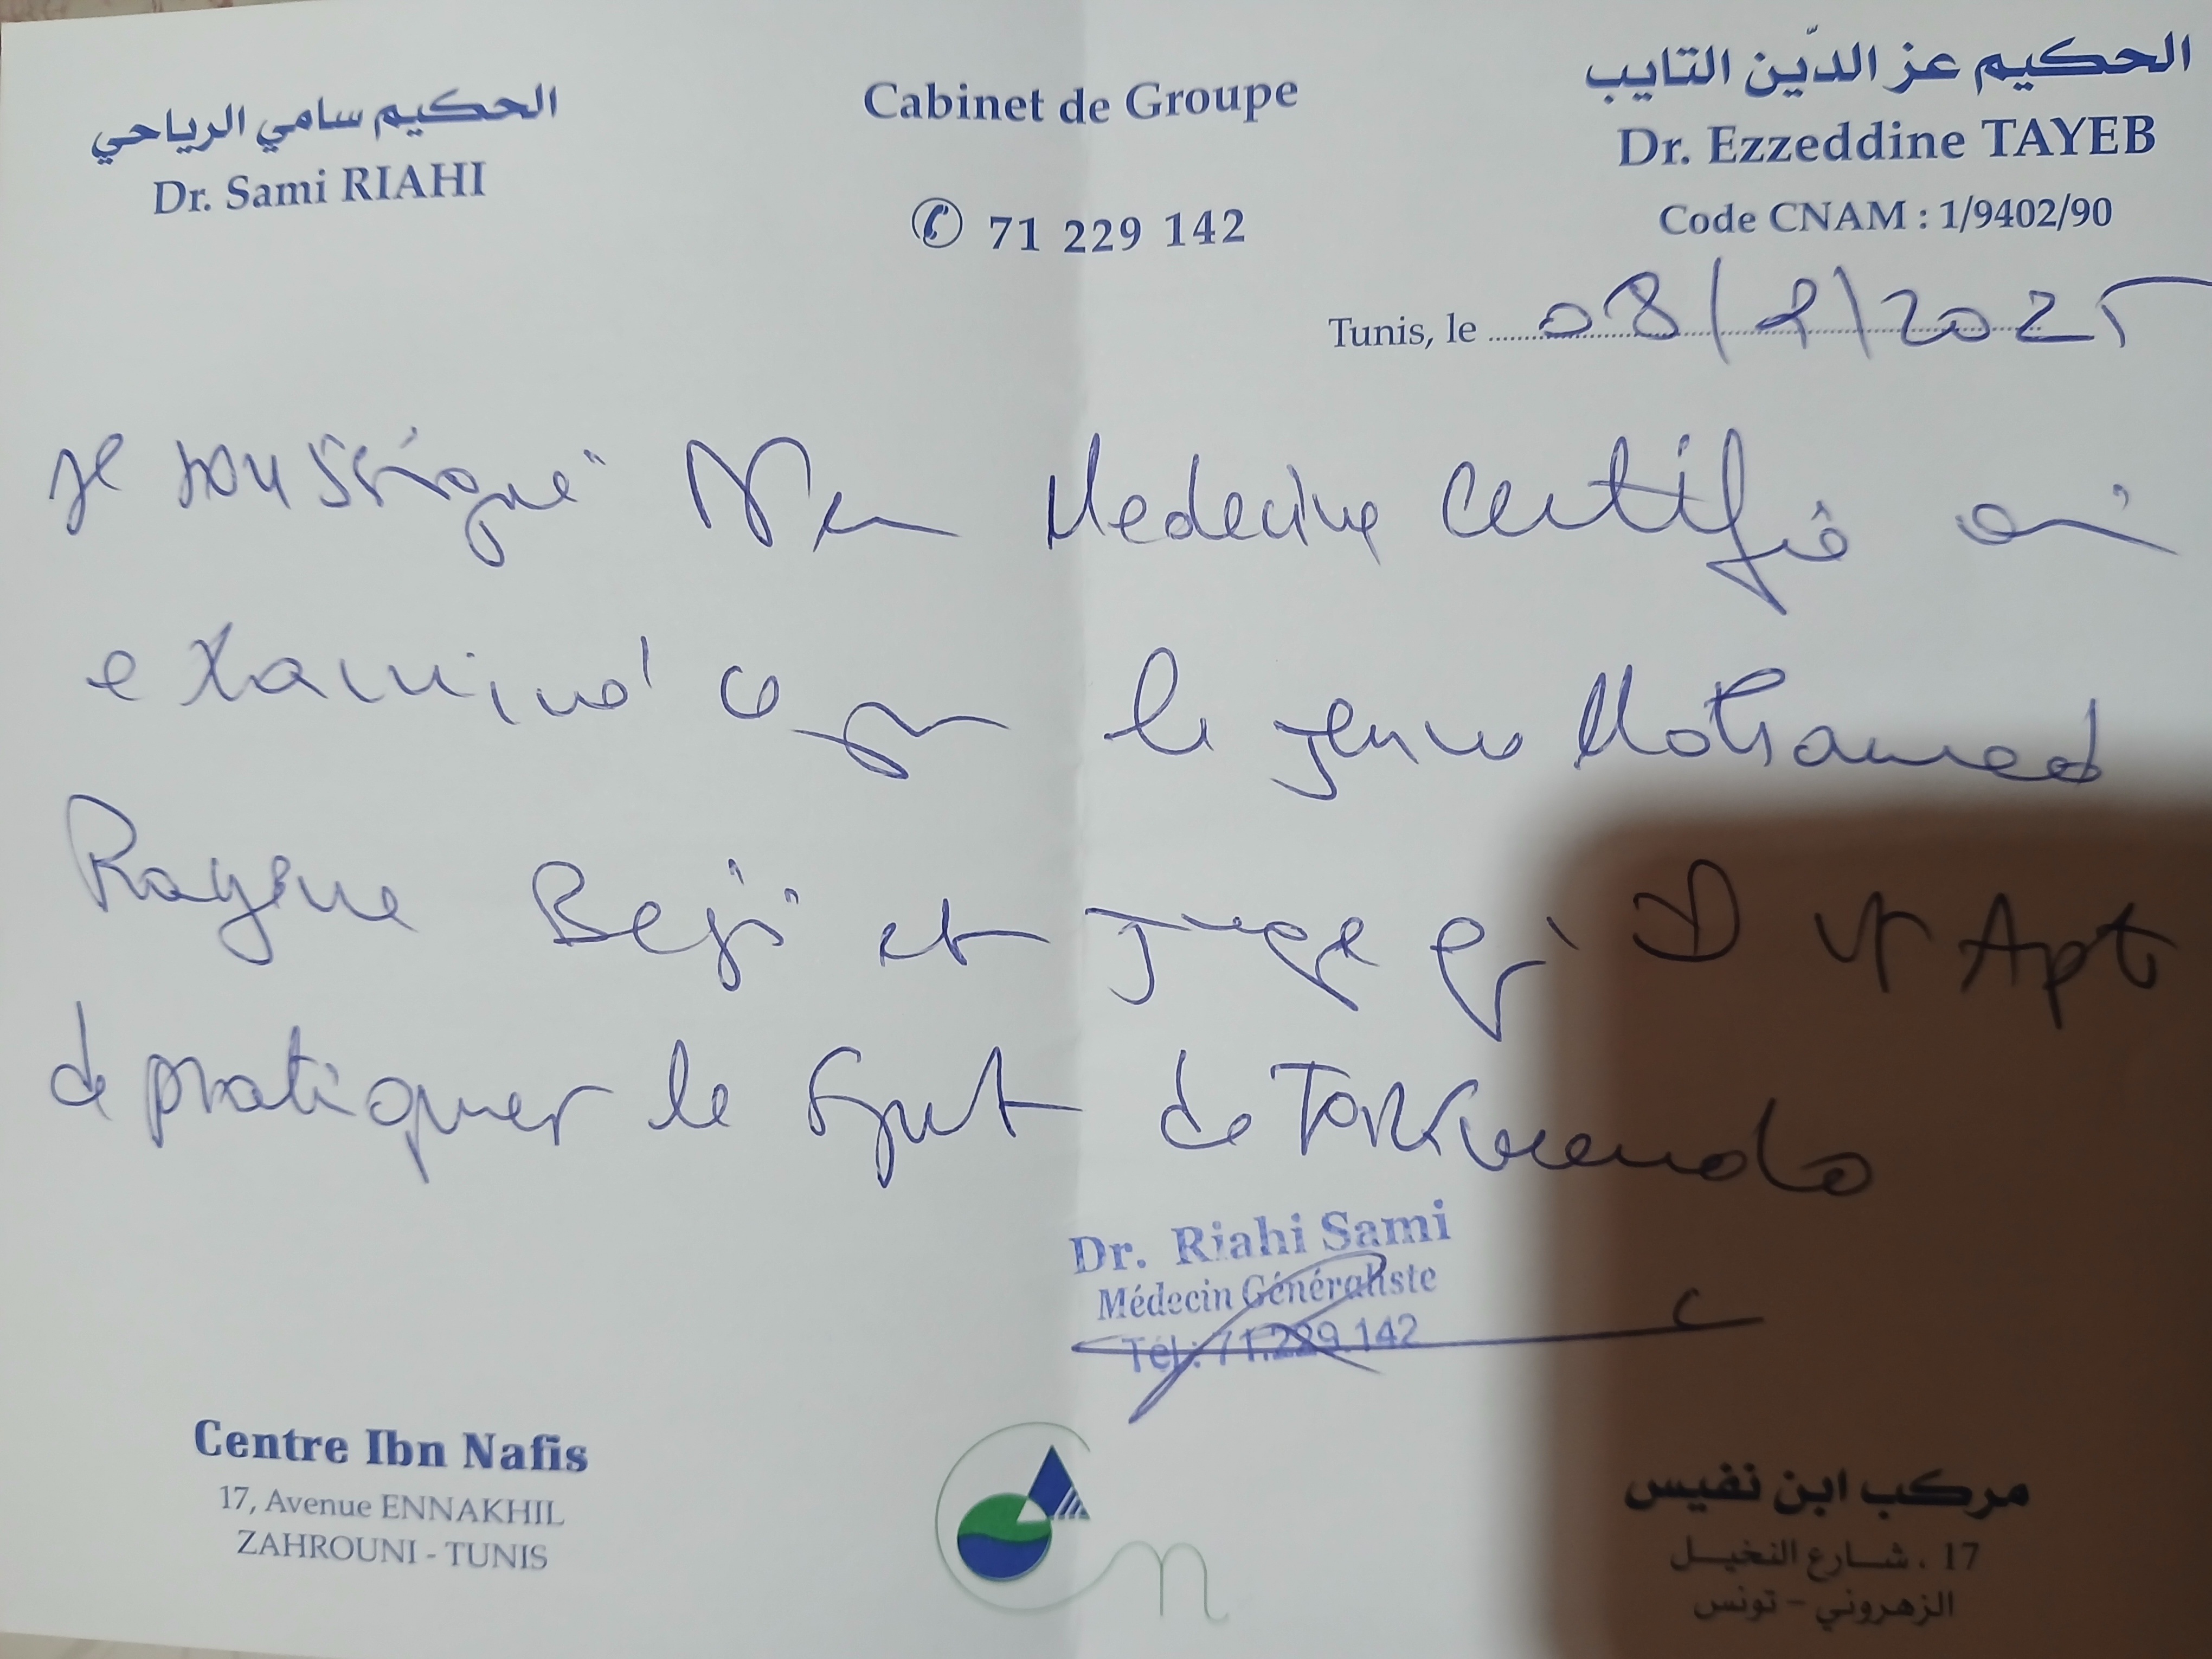 الحكيم سامي الرياحي
Dr. Sami RIAHI
Cabinet de Groupe
71 229 142
الحكيم عز الدّين التايب
Dr. Ezzeddine TAYEB
Code CNAM : 1/9402/90
Tunis, le 08/2/2025
Je soussigné Medecine Certifié
examiné ce jour le jeune Mohamed
Rayene Beji et juge Apt
de pratiquer le sport de
Dr. Riahi Sami
Médecin Généraliste
Tél.: 71.229.142
Centre Ibn Nafis
17, Avenue ENNAKHIL
ZAHROUNI - TUNIS
مركب ابن نفيس
17 ، شارع النخيل
الزهروني - تونس